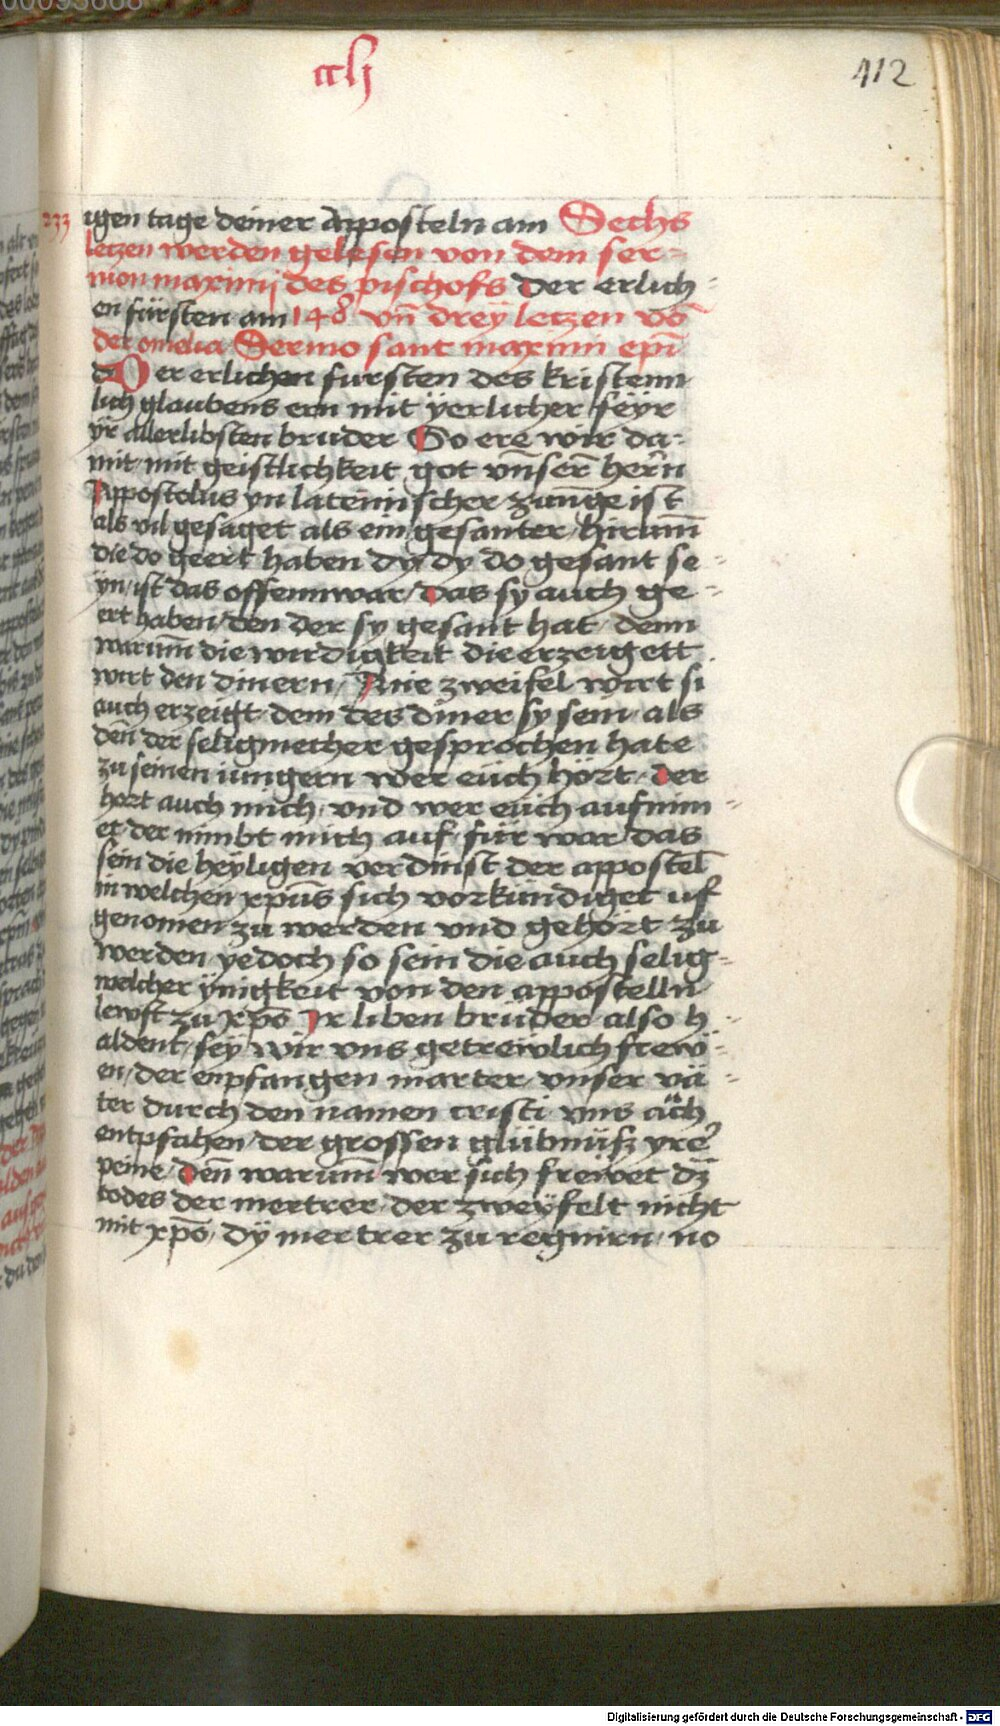 ccli
412
233 igen tage deiner Apposteln am Sechs
letzen werden gelesen von dem ser-
mon maximj des pischofs Der erlich-
en fürsten am 148 vn̄ dreÿ letzen vō
der omelia Sermo sant maximi ep̄i
Der erlichen fursten des kristenn
lich glaubens ern mit ÿerlicher feÿr
ÿr allerlibsten bruder So ere wir da-
mit mit geistlichkeit got vn̄ser̄ her̄n
Appostolus yn lateinischer zun̄ge ist
als vil gesaget als ein gesanter hirum̄
die do geert haben dy dy do gesant se-
yn ist das offennwar das sy auch ge-
ert haben den der sy gesant hat denn
warum̄ die wirdigkeit die erzeigett
wirt den dinern / Ane zweifel wirt si
auch erzeigt dem des diner sy sein als
den̄ der seligmecher gesprochen hate
zu seinen iungern wer euch hört der
hört auch mich vnd wer euch aufnim-
et der nimbt mich auf für war das
sein die heÿligen verdinst der appostel̄
in welchen xpūs sich vorkundiget uf
genomen zu werden vnd gehört zu
werden yedoch so sein die auch selig-
welcher ÿnigkeit von den appostelln
lewft zu xp̄o Ir liben brüder also h-
aldent seÿ wir vns getrewlich frew-
en der enpfangen marter vnser vä-
ter durch den namen cristi vns auch
entpfahen der grossen glubnüß yrer
peine Den̄ warum̄ wer sich frewet dz
todes der mertrer der zweÿfelt nicht
mit xp̄o dÿ mertrer zu regnirn no
Digitalisierung gefördert durch die Deutsche Forschungsgemeinschaft - DFG